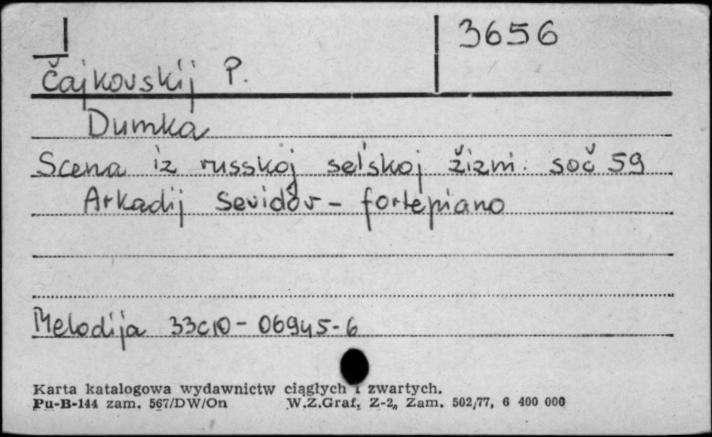 3656
Čajkovskij P.
Dumka
Scena iz russkoj sel'skoj žizni. soč 59
Arkadij Sevidov - fortepiano
Melodija 33C10-06945-6
Karta katalogowa wydawnictw ciągłych i zwartych.
Pu-B-144 zam. 567/DW/On W.Z.Graf. Z-2, Zam. 502/77, 6 400 000